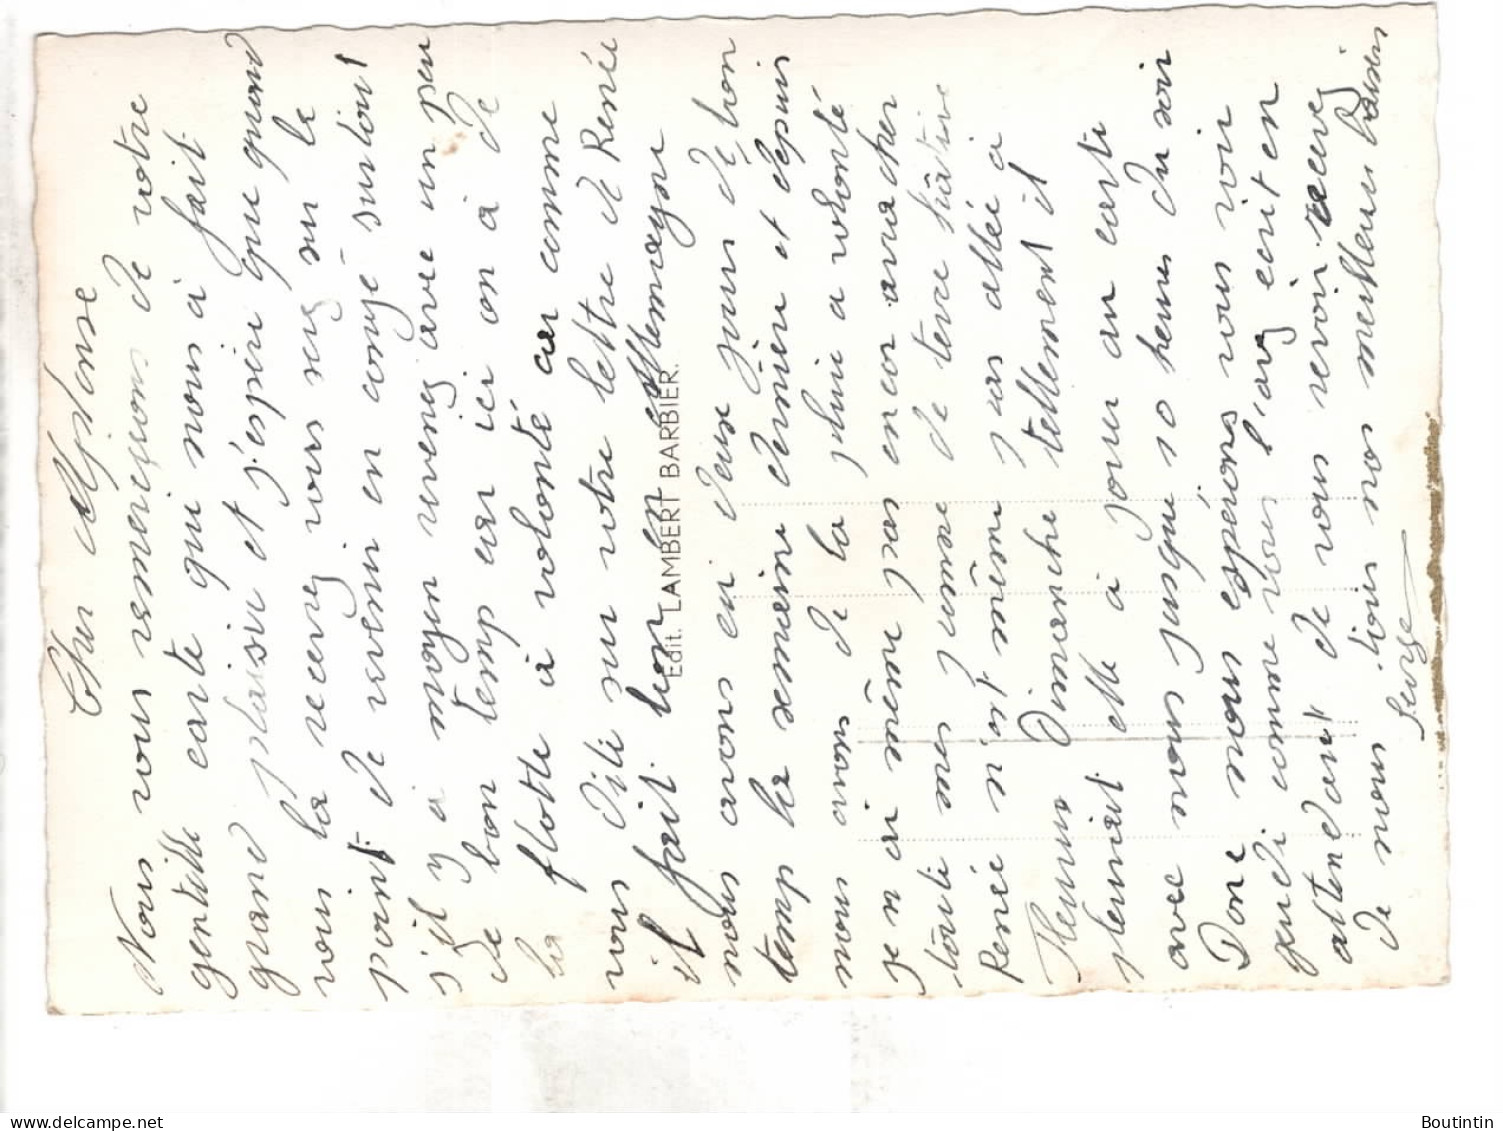 Cher Alphonse
Nous vous remercions de votre
gentille carte qui nous à fait
grand plaisir et j'espère que quand
vous la recevrez vous serez sur le
point de revenir en congé surtout
s'il y à moyen revenez avec un peu
de bon temp car ici on à de
la flotte à volonté car comme
vous dite sur votre lettre de Renée
il fait bon en Allemagne
nous avons eu deux jours de bon
temp la semaine dernière et depuis
nous avons de la pluie a volonté
je n ai même pas encor arracher
toute mes pomme de terre hâtive
Renée n'ost même pas allée à
Hennuy Dimanche tellement il
pleuviat elle à jouer au carte
avec nous jusque 10 heures du soir
Donc nous espérons vous voir
jeudi comme vous l'avez ecrit en
attendant de vous revoir recevez
de nous tous nos meilleurs Baisers
Serge
Edit. LAMBERT BARBIER.
Boutintin